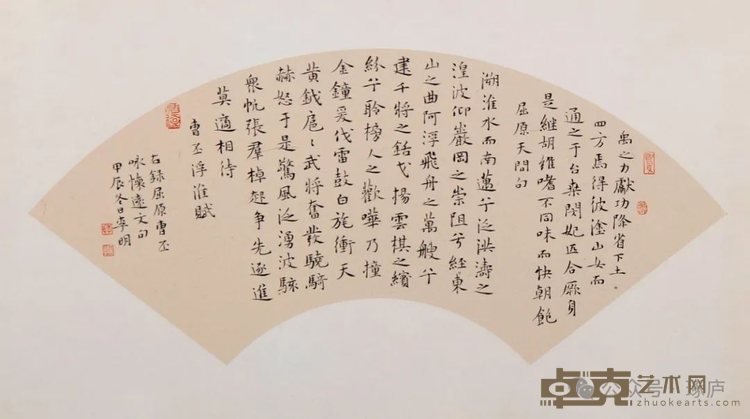 禹之力獻功降省下土。
四方焉得彼塗山女而
通之于台桑閔妃匹合厥身
是繼胡維嗜不同味而快朝飽
屈原天問句
溯淮水而南邁兮泛洪濤之
湟波仰巖岡之崇阻兮經東
山之曲阿浮飛舟之萬艘兮
建干將之銛戈揚雲旗之繽
紛兮聆榜人之歡嘩乃撞
金鐘爰伐雷鼓白旄衝天
黃鉞扈〻武將奮發驍騎
赫怒于是驚風泛湧波駭
衆帆張羣棹起爭先逐進
莫適相待
曹丕浮淮賦
右錄屈原曹丕
咏懷遠文句
甲辰冬日李明
公众号 琢庐
卓克艺术网
zhuokearts.com